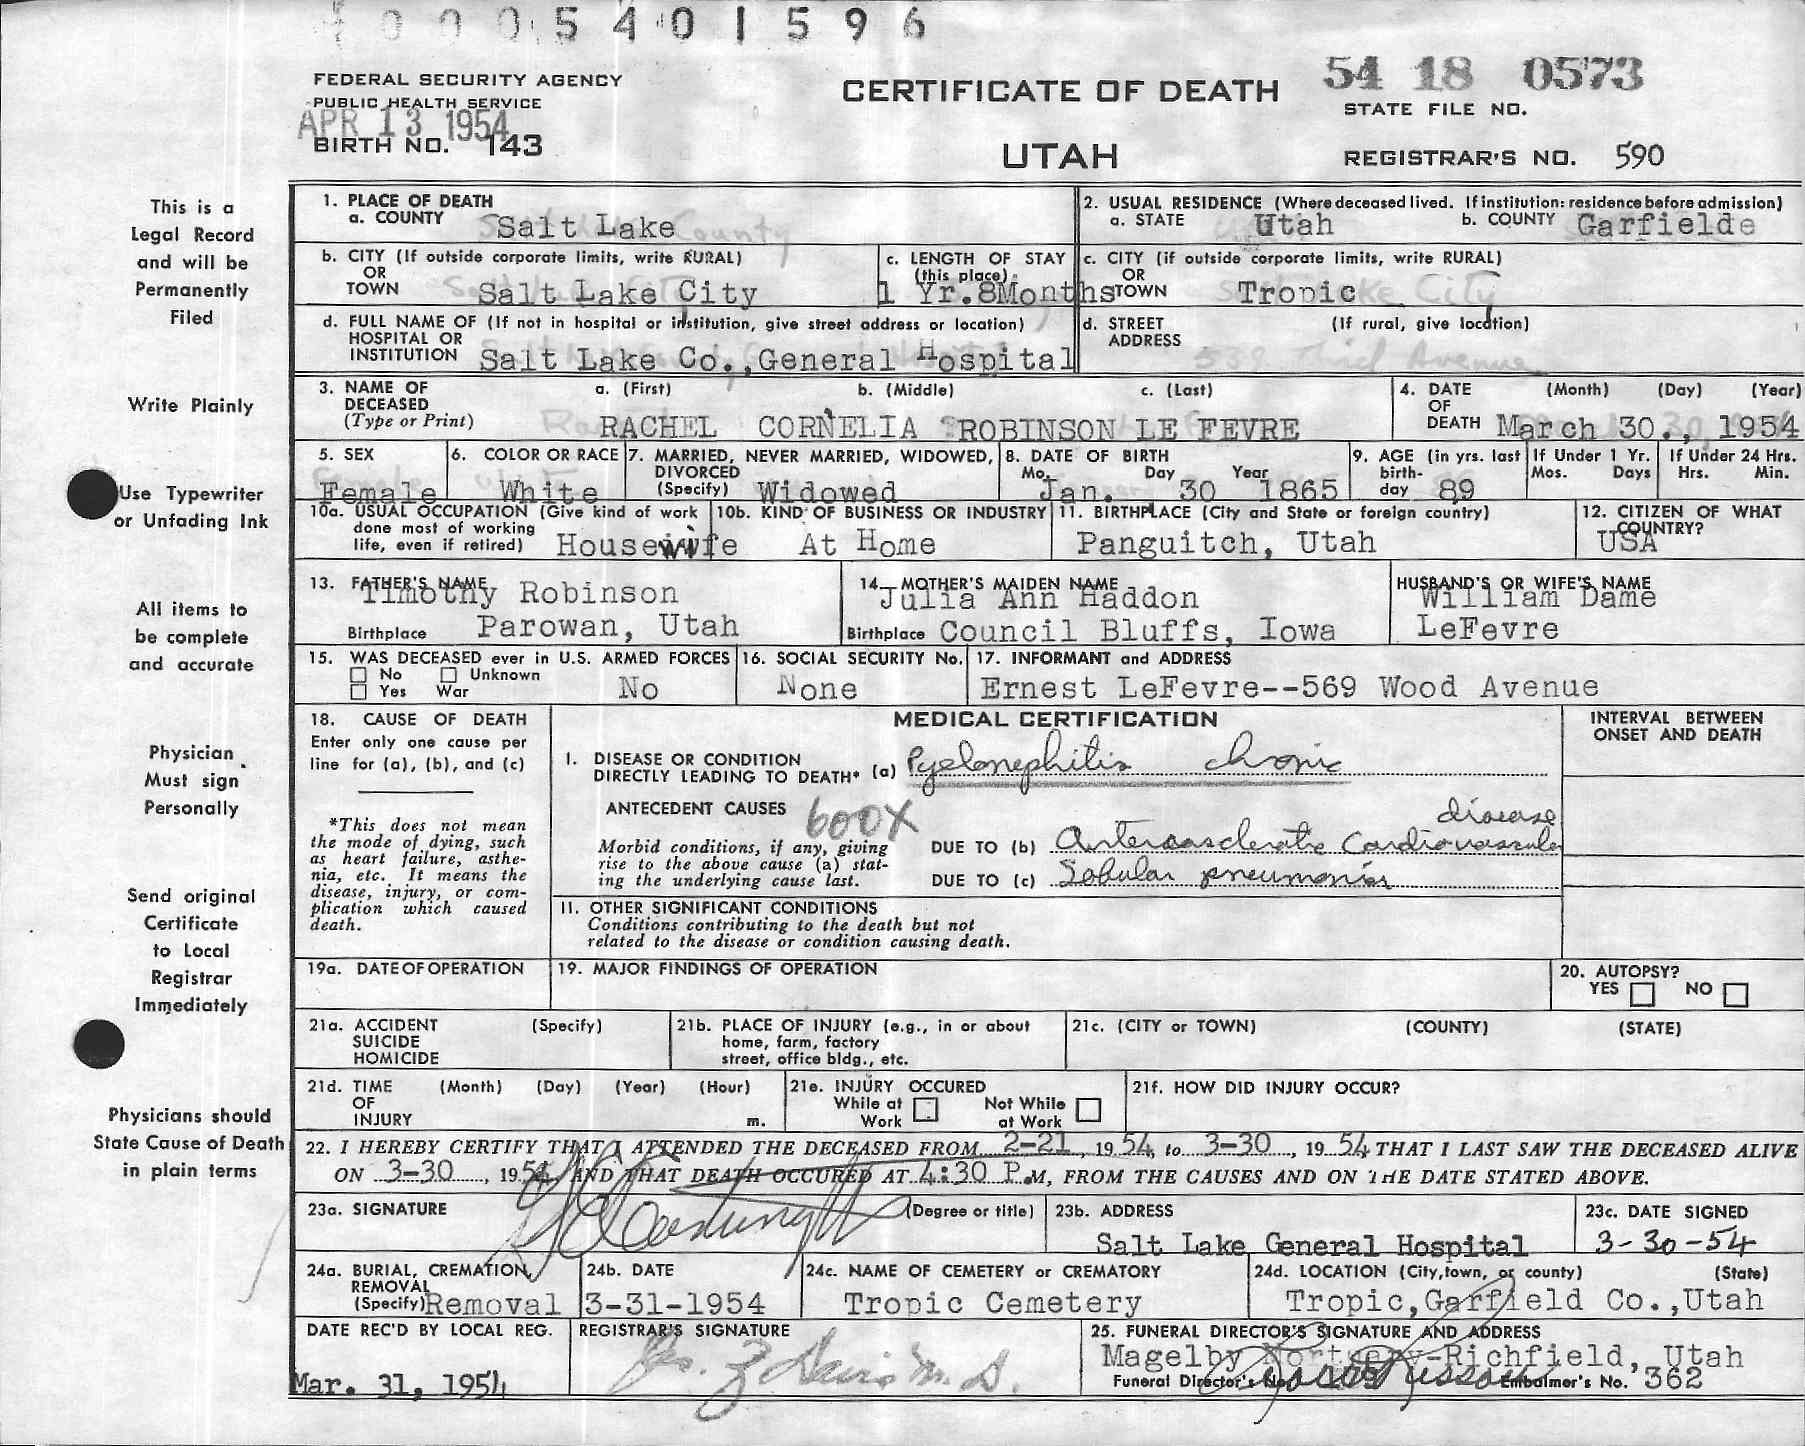 0 0 0 5 4 0 1 5 9 6
FEDERAL SECURITY AGENCY
PUBLIC HEALTH SERVICE
APR 13 1954
BIRTH NO. 143
CERTIFICATE OF DEATH
UTAH
54 18 0573
STATE FILE NO.
REGISTRAR'S NO. 590
This is a
Legal Record
and will be
Permanently
Filed
Write Plainly
Use Typewriter
or Unfading Ink
All items to
be complete
and accurate
Physician
Must sign
Personally
Send original
Certificate
to Local
Registrar
Immediately
Physicians should
State Cause of Death
in plain terms
1. PLACE OF DEATH
a. COUNTY Salt Lake
2. USUAL RESIDENCE (Where deceased lived. If institution: residence before admission)
a. STATE Utah b. COUNTY Garfielde
b. CITY (If outside corporate limits, write RURAL)
OR
TOWN Salt Lake City
c. LENGTH OF STAY
(this place)
1 Yr.8Months
c. CITY (if outside corporate limits, write RURAL)
OR
TOWN Tropic
d. FULL NAME OF (If not in hospital or institution, give street address or location)
HOSPITAL OR
INSTITUTION Salt Lake Co.,General Hospital
d. STREET (If rural, give location)
ADDRESS
3. NAME OF a. (First) b. (Middle) c. (Last)
DECEASED
(Type or Print) RACHEL CORNELIA ROBINSON LE FEVRE
4. DATE (Month) (Day) (Year)
OF
DEATH March 30., 1954
5. SEX
Female
6. COLOR OR RACE
White
7. MARRIED, NEVER MARRIED, WIDOWED,
DIVORCED
(Specify) Widowed
8. DATE OF BIRTH
Mo. Day Year
Jan. 30 1865
9. AGE (in yrs. last
birth-
day 89
If Under 1 Yr.
Mos. Days
If Under 24 Hrs.
Hrs. Min.
10a. USUAL OCCUPATION (Give kind of work
done most of working
life, even if retired) Housewife
10b. KIND OF BUSINESS OR INDUSTRY
At Home
11. BIRTHPLACE (City and State or foreign country)
Panguitch, Utah
12. CITIZEN OF WHAT
COUNTRY?
USA
13. FATHER'S NAME
Timothy Robinson
Birthplace Parowan, Utah
14. MOTHER'S MAIDEN NAME
Julia Ann Haddon
Birthplace Council Bluffs, Iowa
HUSBAND'S OR WIFE'S NAME
William Dame
LeFevre
15. WAS DECEASED ever in U.S. ARMED FORCES
No Unknown
Yes War No
16. SOCIAL SECURITY No.
None
17. INFORMANT and ADDRESS
Ernest LeFevre--569 Wood Avenue
18. CAUSE OF DEATH
Enter only one cause per
line for (a), (b), and (c)
*This does not mean
the mode of dying, such
as heart failure, asthe-
nia, etc. It means the
disease, injury, or com-
plication which caused
death.
MEDICAL CERTIFICATION
I. DISEASE OR CONDITION
DIRECTLY LEADING TO DEATH* (a) Pyelonephitis chronic
ANTECEDENT CAUSES 600X
Morbid conditions, if any, giving
rise to the above cause (a) stat-
ing the underlying cause last.
disease
DUE TO (b) Arterioasclerotic Cardiovascular
DUE TO (c) Lobular pneumonia
II. OTHER SIGNIFICANT CONDITIONS
Conditions contributing to the death but not
related to the disease or condition causing death.
INTERVAL BETWEEN
ONSET AND DEATH
19a. DATE OF OPERATION
19. MAJOR FINDINGS OF OPERATION
20. AUTOPSY?
YES NO
21a. ACCIDENT (Specify)
SUICIDE
HOMICIDE
21b. PLACE OF INJURY (e.g., in or about
home, farm, factory
street, office bldg., etc.
21c. (CITY or TOWN) (COUNTY) (STATE)
21d. TIME (Month) (Day) (Year) (Hour)
OF
INJURY m.
21e. INJURY OCCURED
While at Not While
Work at Work
21f. HOW DID INJURY OCCUR?
22. I HEREBY CERTIFY THAT I ATTENDED THE DECEASED FROM 2-21, 1954, to 3-30, 1954 THAT I LAST SAW THE DECEASED ALIVE
ON 3-30, 1954 AND THAT DEATH OCCURED AT 4:30 P.M, FROM THE CAUSES AND ON THE DATE STATED ABOVE.
23a. SIGNATURE (Degree or title)
23b. ADDRESS
Salt Lake General Hospital
23c. DATE SIGNED
3-30-54
24a. BURIAL, CREMATION,
REMOVAL
(Specify) Removal
24b. DATE
3-31-1954
24c. NAME OF CEMETERY or CREMATORY
Tropic Cemetery
24d. LOCATION (City,town, or county) (State)
Tropic,Garfield Co.,Utah
DATE REC'D BY LOCAL REG.
Mar. 31, 1954
REGISTRAR'S SIGNATURE
Davis M. D.
25. FUNERAL DIRECTOR'S SIGNATURE AND ADDRESS
Magelby Mortuary-Richfield, Utah
Funeral Director's No. Embalmer's No. 362